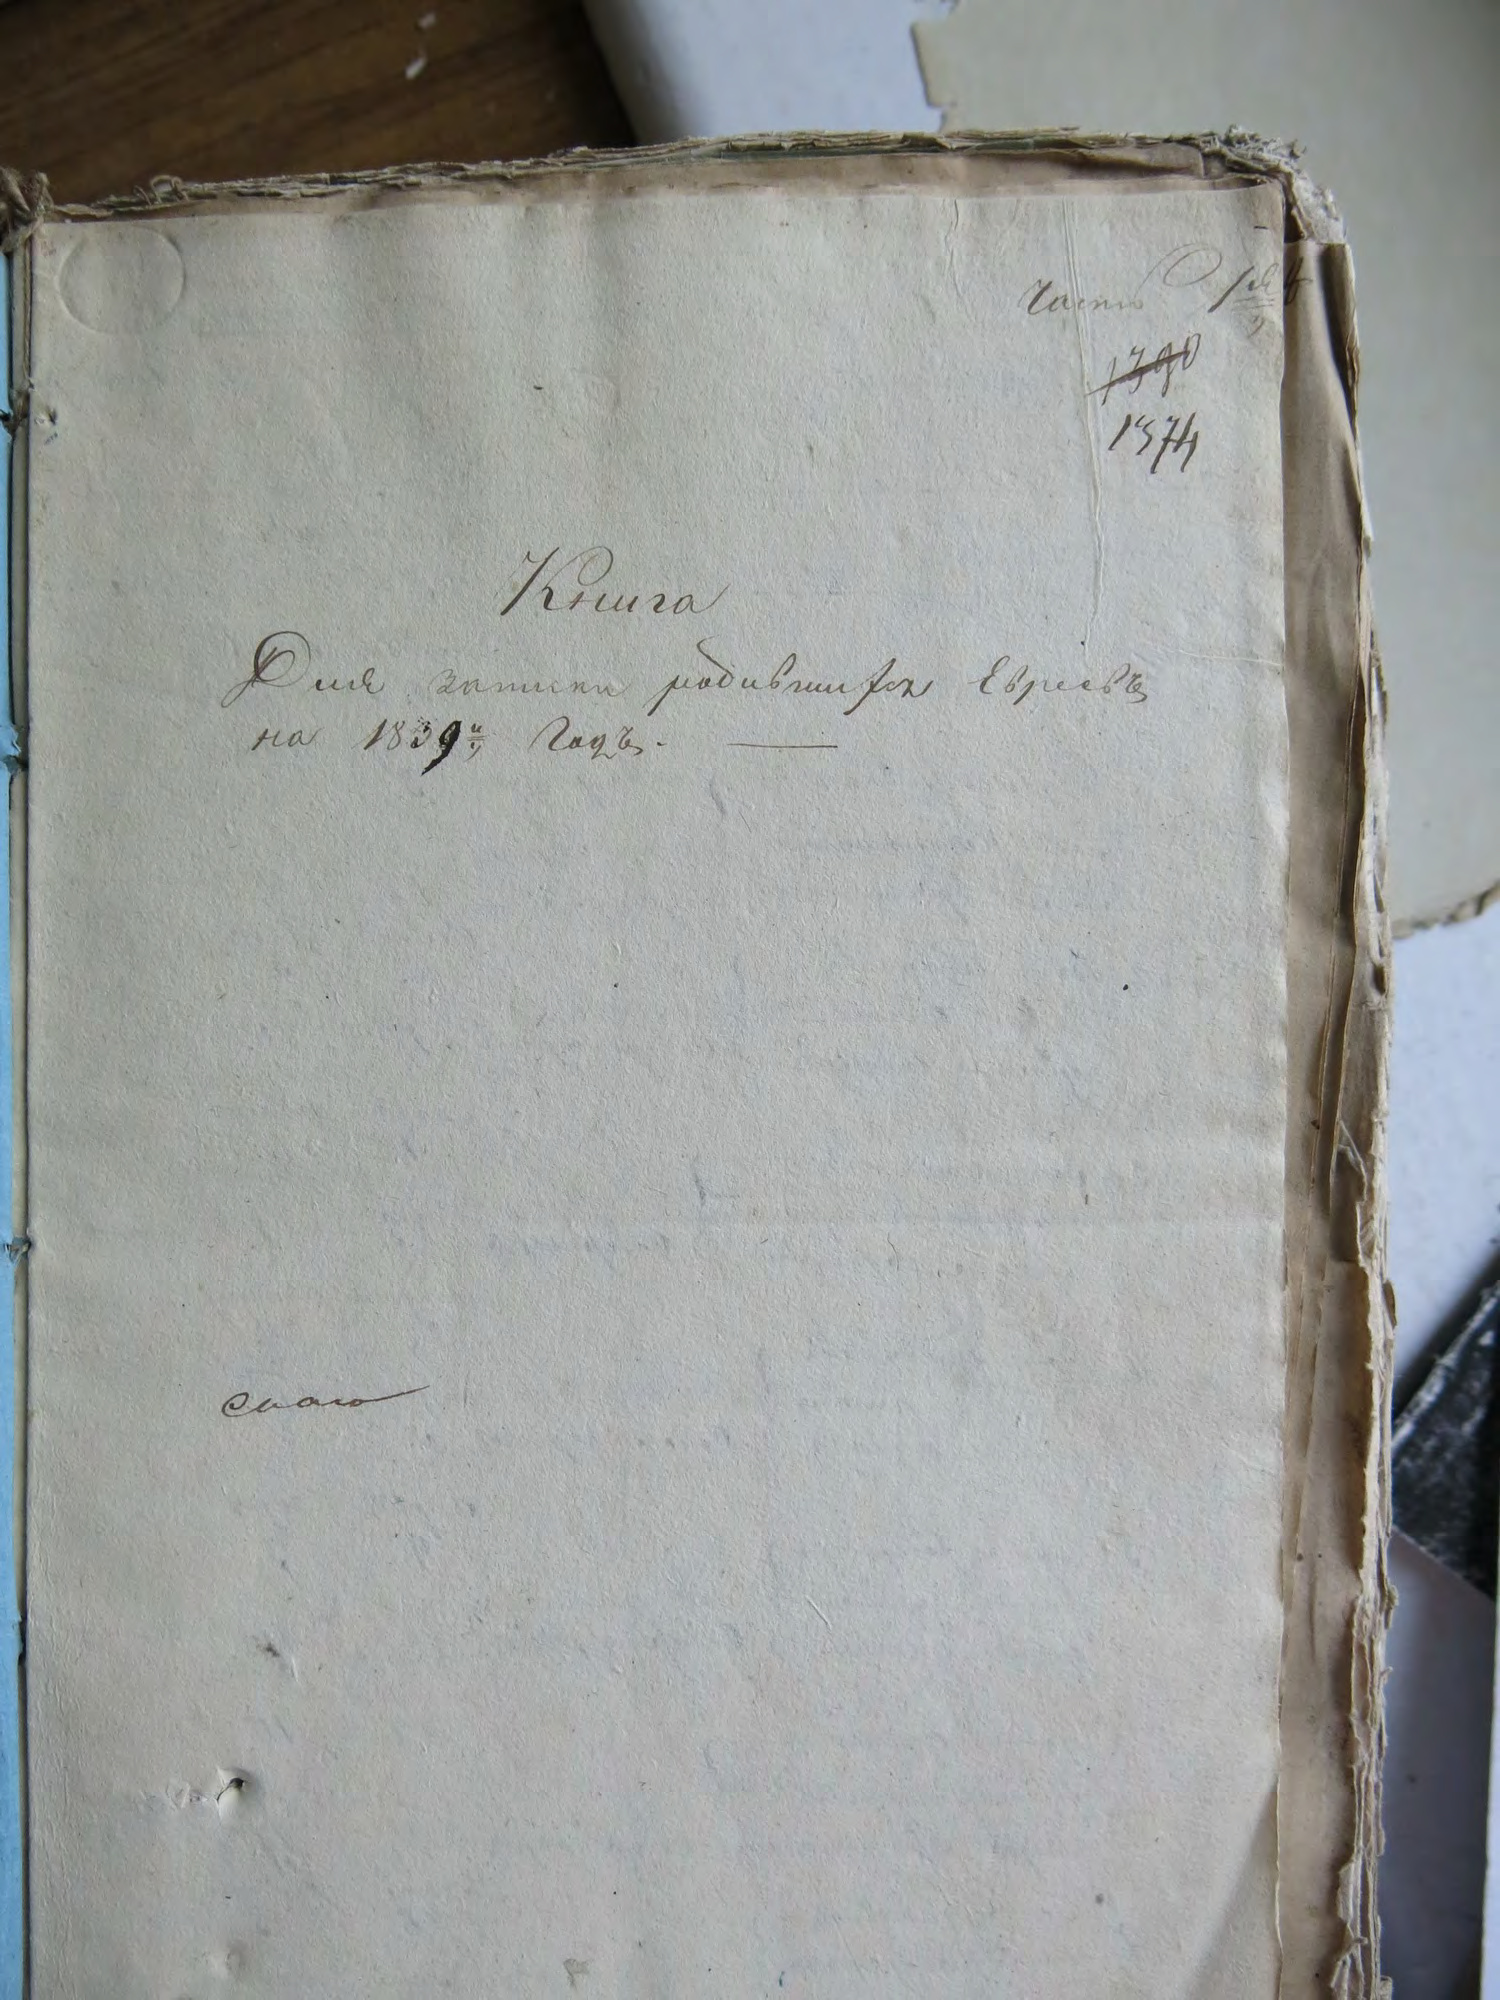 Часть 1я
1390
1374
Книга
Для записки родившихся Евреевъ
на 1839й Годъ.